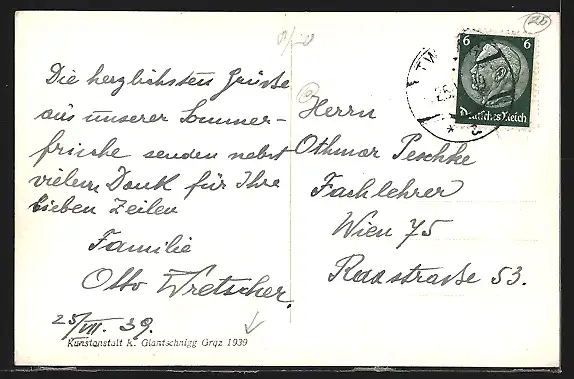 Die herzlichsten Grüße
aus unserer Sommer-
frische senden nebst
vielem Dank für Ihre
lieben Zeilen
Familie
Otto Wretscher.
25/VII. 39.
Kunstanstalt K. Glantschnigg Graz 1939
6 6
Deutsches Reich
Herrn
Othmar Peschke
Fachlehrer
Wien 75
Raastraße 53.